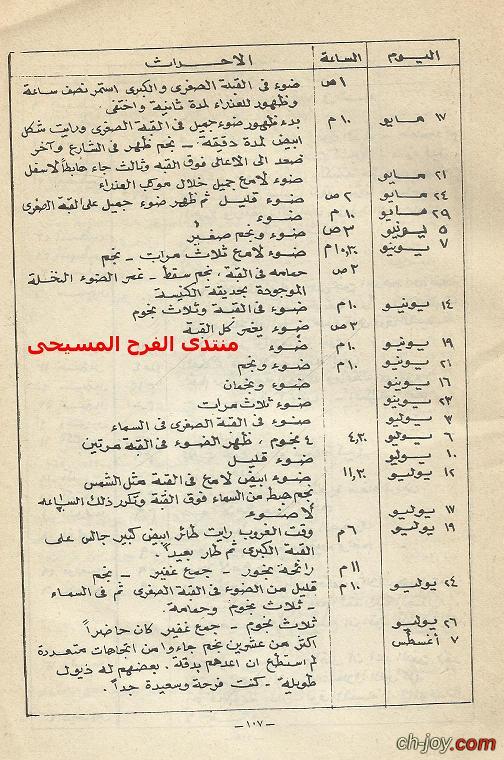 اليوم الساعة الأحداث
١ ص ضوء فى القبة الصغرى والكبرى استمر نصف ساعة
وظهور للعذراء لمدة ثانية واختفى
١٧ مايو ١٠ م بدء ظهور ضوء جميل فى القبة الصغرى ورايت شكل
ابيض لمدة دقيقة – نجم ظهر فى الشارع وآخر
صعد الى الاعالى فوق القبه وثالث جاء هابطاً لاسفل
٢١ مايو ضوء لامع جميل خلال موكب العذراء
٢٤ مايو ٢ ص ضوء قليل ثم ظهر ضوء جميل على القبة الصغرى
٢٩ مايو ١٠ م ضوء
٥ يونيو ٣ ص ضوء ونجم صغير
٧ يونيو ١٠,٣٠ م ضوء لامع ثلاث مرات – نجم
٢ ص حمامه فى القبة، نجم سقط – غمر الضوء النخلة
الموجودة بحديقة الكنيسة
١٤ يونيو ١٠ م ضوء فى القبة وثلاث نجوم
٣ ص ضوء يغمر كل القبة
١٩ يونيو ١٠ م ضوء
منتدى الفرح المسيحى
٢١ يونيو ١٠ م ضوء ونجم
١٦ يونيو ضوء ونجمان
٢٣ يونيو ضوء ثلاث مرات
٣ يوليو ضوء فى القبة الصغرى فى السماء
٦ يوليو ٤,٣٠ ٤ نجوم، ظهر الضوء فى القبة مرتين
١٠ يوليو ضوء قليل
١٢ يوليو ١١,٣٠ ضوء ابيض لامع فى القبة مثل الشمس
نجم هبط من السماء فوق القبة وتكرر ذلك الساعه
١٧ يوليو لا ضوء
١٩ يوليو ٦ م وقت الغروب رايت طائر ابيض كبير جالس على
القبة الكبرى ثم طار بعيداً
١١ م رائحة بخور – جمع غفير – نجم
٢٤ يوليو ١٠ م قليل من الضوء فى القبة الصغرى ثم فى السماء
– ثلاث نجوم وحمامه.
٢٦ يوليو ثلاث نجوم – جمع غفير كان حاضراً
٧ أغسطس اكثر من عشرين نجم جاءوا من اتجاهات متعددة
لم استطع ان اعدهم بدقة. بعضهم له ذيول
طويله – كنت فرحة وسعيدة جداً.
– ١٠٧ –
ch-joy.com